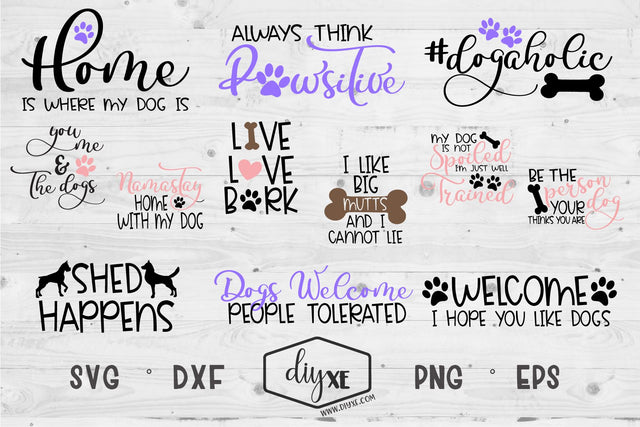 Home
IS WHERE MY DOG IS
ALWAYS THINK
Pawsitive
#dogaholic
you
me
&
The dogs
Namastay
HOME
WITH MY DOG
LIVE
LOVE
BARK
I LIKE
BIG
MUTTS
AND I
CANNOT LIE
MY DOG
IS NOT
Spoiled
I'M JUST WELL
Trained
BE THE
person
YOUR
dog
THINKS YOU ARE
SHED
HAPPENS
Dogs Welcome
PEOPLE TOLERATED
WELCOME
I HOPE YOU LIKE DOGS
SVG • DXF
diyXE
WWW.DIYXE.COM
PNG • EPS